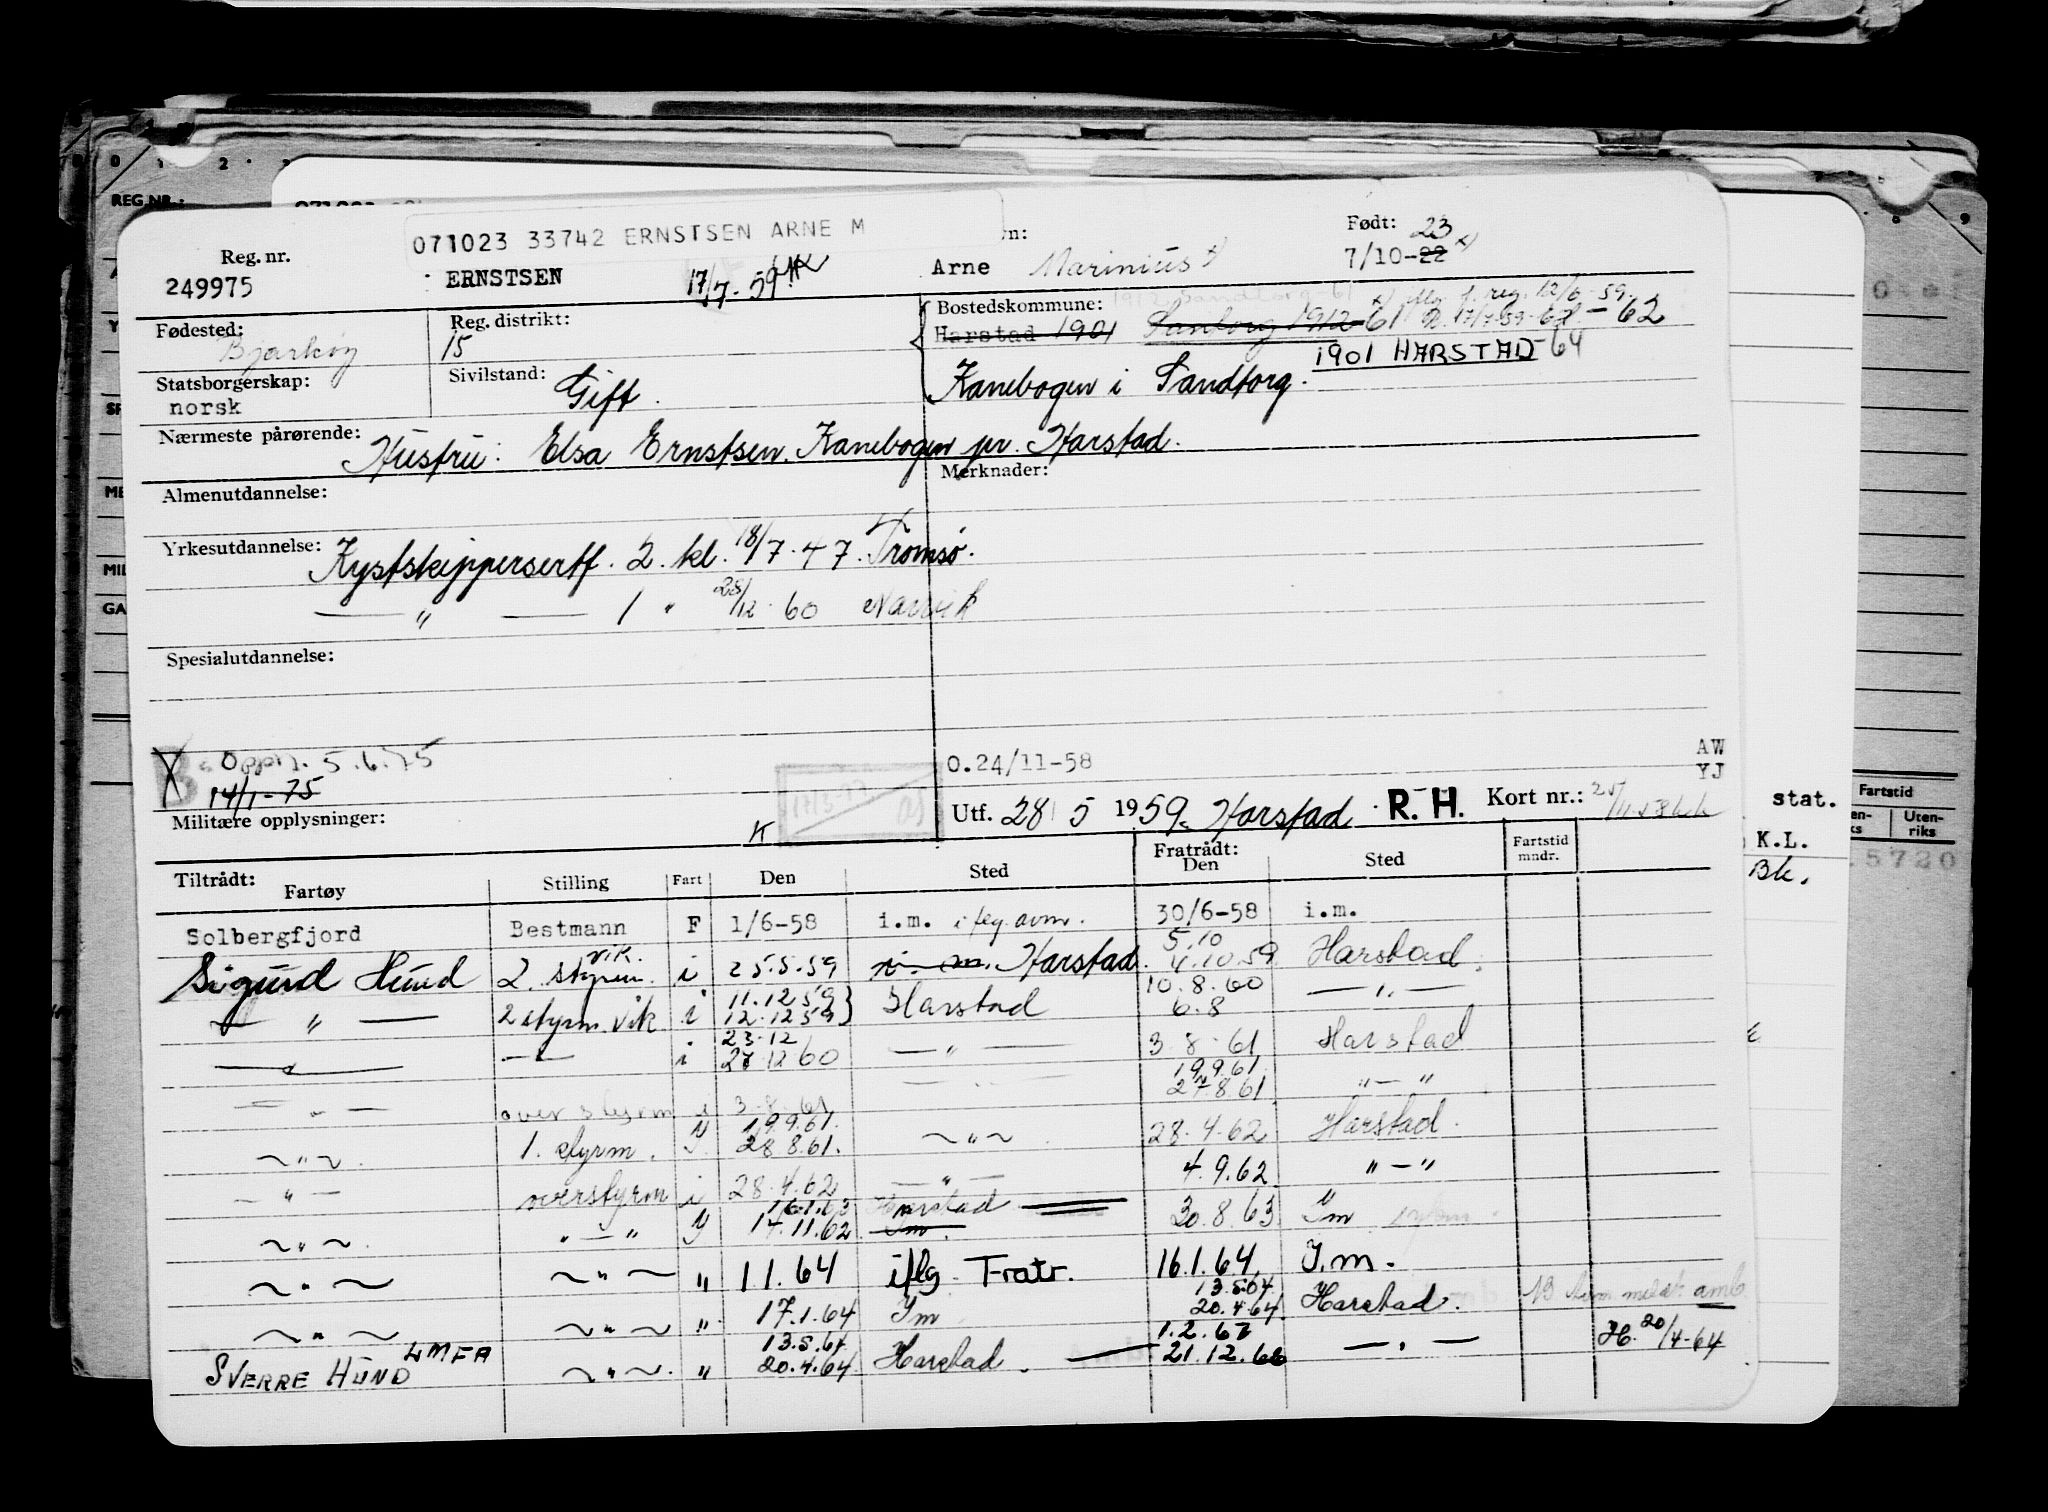 071023 33742 ERNSTSEN ARNE M
Reg. nr. 249975
ERNSTSEN 17/7-59
Arne Marinius
Født: 23
7/10-22 x)
Fødested: Bjarkøy
Reg. distrikt: 15
Bostedskommune:
Harstad 1901 Sandtorg 1912-61 x) reg. 12/6-59
17/7-59 -62
1901 HARSTAD-64
Statsborgerskap: norsk
Sivilstand: Gift.
Kanebogen i Sandtorg.
Nærmeste pårørende: Hustru: Elsa Ernstsen, Kanebogen pr. Harstad.
Almenutdannelse:
Merknader:
Yrkesutdannelse: Kystskippersertf. 2. kl. 18/7-47. Tromsø.
— " — 1 " 28/12-60 Narvik
Spesialutdannelse:
Oppn. 5.6.75
14/1-75
Militære opplysninger:
K
0.24/11-58
AW
YJ
Utf. 28/5 1959. Harstad. R. H. Kort nr.:
Tiltrådt: Fartøy Stilling Fart Den Sted Fratrådt: Den Sted Fartstid mndr.
Solbergfjord Bestmann F 1/6-58 i.m. i flg. avm. 30/6-58 i.m.
Sigurd Hund 2. styrm. vik. i 25.5.59 i. m. Harstad 5.10 4.10.59 Harstad.
— " — 2 styrm. vik i 11.12 59 12.12 59 } Harstad 10.8.60 6.8 — " —
— " — — " — i 23.12 27.12 60 — " — 3.8.61 Harstad
— " — overstyrm i 3.8.61 — " — 19.9.61 27.8.61 " — "
~ " ~. 1. styrm. Y 19.9.61. 28.8.61. ~ " ~ 28.4.62 Harstad.
— " — overstyrm i 28.4.62 — " — 4.9.62 " — "
~ " ~. " — " Y 16.1.63 14.11.62 Harstad Im. 30.8.63 Im
~ " ~ ~ " ~ " 1 1. 64 iflg. Fratr. 16.1.64. I.m.
~ " ~ ~ " ~ " 17.1.64 Im 13.5.64 20.4.64 Harstad.
SVERRE HUND LMFA ~ " ~. " 13.5.64 20.4.64 Harstad. 1.2.67 21.12.66 — " — H. 20/4-64
REG. NR.:
stat.
K.L.
Bk.
Fartstid
Uten-
riks
5720